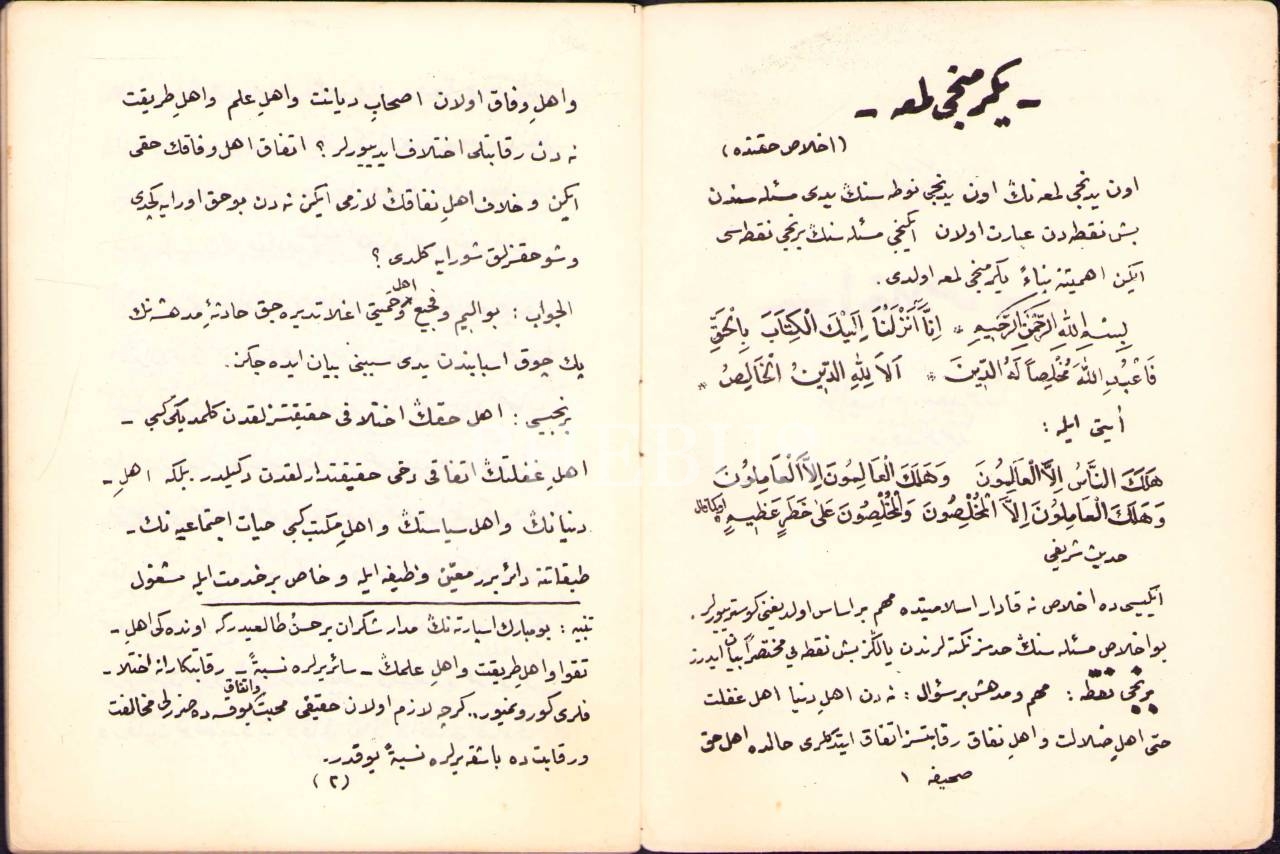 - يگرمنجی لمعه -
(اخلاص حقنده)
اون يدنجی لمعه نڭ اون يدنجی نوطه سنڭ يدی مسئله سندن
بش نقطه دن عبارت اولان ايكنجی مسئله سنڭ برنجی نقطه سی
ايكن اهميتنه بناءً يگرمنجی لمعه اولدی.
بِسْمِ اللهِ الرَّحْمٰنِ الرَّحِيمِ * اِنَّٓا اَنْزَلْنَٓا اِلَيْكَ الْكِتَابَ بِالْحَقِّ
فَاعْبُدِ اللهَ مُخْلِصاً لَهُ الدِّينَ * اَلاَ لِلّٰهِ الدِّينُ الْخَالِصُ *
أيتی ايله :
هَلَكَ النَّاسُ اِلاَّ الْعَالِمُونَ وَهَلَكَ الْعَالِمُونَ اِلاَّ الْعَامِلُونَ
وَهَلَكَ الْعَامِلُونَ اِلاَّ الْمُخْلِصُونَ وَالْمُخْلِصُونَ عَلٰى خَطَرٍ عَظِيمٍ اوكما قال
حديث شريفی
ايكيسی ده اخلاص نه قادار اسلاميتده مهم بر اساس اولديغنی كوسترييورلر.
بو اخلاص مسئله سنڭ حدسز نكته لرندن يالڭز بش نقطه يی مختصراً بيان ايدرز
برنجی نقطه : مهم و مدهش بر سؤال : نه دن اهلِ دنيا اهل غفلت
حتی اهلِ ضلالت و اهلِ نفاق رقابتسز اتفاق ايتدكلری حالده اهل حق
صحيفه ١
و اهلِ وفاق اولان اصحابِ ديانت و اهلِ علم و اهلِ طريقت
نه دن رقابتلی اختلاف ايدييورلر ؟ اتفاق اهل وفاقك حقی
ايكن و خلاف اهلِ نفاقڭ لازمی ايكن نه دن بو حق اورايه كچدی
و شو حقسزلق شورايه كلدی ؟
الجواب : بو اليم و فجيع و اهل حَميتی اغلاتديره جق حادثهٔ مدهشه نك
پك چوق اسبابندن يدی سببنی بيان ايده جكز.
برنجيسی : اهل حقڭ اختلافی حقيقتسزلقدن كلمديكی كبی -
اهلِ غفلتڭ اتفاقی دخی حقيقتدارلقدن دكيلدر. بلكه اهلِ -
دنيانڭ و اهل سياستڭ و اهلِ مكتب كبی حيات اجتماعيه نك -
طبقاتنه دائر برر معيّن وظيفه ايله و خاص بر خدمت ايله مشغول
تنبيه : بو مبارك اسپارته نڭ مدار شكران بر حسن طالعيدركه اونده كی اهلِ -
تقوا و اهل طريقت و اهلِ علمڭ - سائر يرلره نسبةً - رقابتكارانه اختلا -
فلری كورونميور.. كرچه لازم اولان حقيقی محبت و اتفاق يوقسه ده ضررلی مخالفت
و رقابت ده باشقه يرلره نسبةً يوقدر.
(٢)